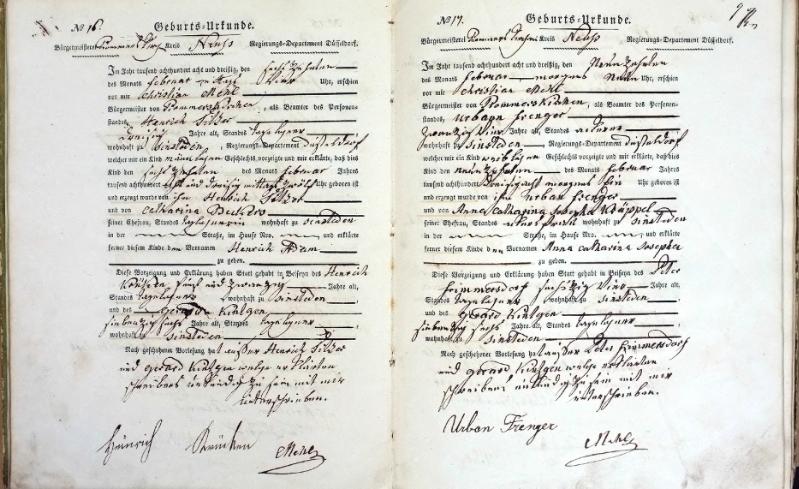 No 16.
Geburts-Urkunde.
Bürgermeisterei Kreis Neuß Regierungs-Departement Düsseldorf.
Im Jahr tausend achthundert acht und dreißig, den sechszehnten
des Monats Februar Uhr, erschien
vor mir Christian Mehl
Bürgermeister von Rommerskirchen, als Beamter des Personen-
standes, Henrich
dreißig Jahre alt, Standes Tagelöhner
wohnhaft zu Sinsteden, Regierungs-Departement Düsseldorf
welcher mir ein Kind männlichen Geschlechts vorzeigte und mir erklärte, daß dies
Kind den sechszehnten des Monats Februar Jahres
tausend achthundert acht und dreißig mittags zwölf Uhr geboren ist
und erzeugt wurde von ihm Henrich
und von Catharina
seiner Ehefrau, Standes wohnhaft zu Sinsteden
in der Straße, im Hause Nro. und erklärte
ferner diesem Kinde den Vornamen Henrich
zu geben.
Diese Vorzeigung und Erklärung haben Statt gehabt in Beiseyn des Henrich
fünf und zwanzig Jahre alt,
Standes Tagelöhner wohnhaft zu Sinsteden
und des Gerard Kintgen
siebenzig sechs Jahre alt, Standes Tagelöhner
wohnhaft zu Sinsteden
Nach geschehener Vorlesung hat außer Henrich
und Gerard Kintgen welche erklärten
schreibens unkundig zu sein mit mir
unterschrieben.
Heinrich Mehl
No 17.
Geburts-Urkunde.
Bürgermeisterei Kreis Neuß Regierungs-Departement Düsseldorf.
Im Jahr tausend achthundert acht und dreißig, den Neunzehnten
des Monats Februar morgens Neun Uhr, erschien
vor mir Christian Mehl
Bürgermeister von Rommerskirchen, als Beamter des Personen-
standes, Urban Frenger
zwanzig Vier Jahre alt, Standes Ackerer
wohnhaft zu Sinsteden, Regierungs-Departement Düsseldorf
welcher mir ein Kind weiblichen Geschlechts vorzeigte und mir erklärte, daß dies
Kind den neunzehnten des Monats Februar Jahres
tausend achthundert dreißig acht morgens Uhr geboren ist
und erzeugt wurde von ihm Urban Frenger
und von Anna Catharina Josepha Kräppel
seiner Ehefrau, Standes wohnhaft zu Sinsteden
in der Straße, im Hause Nro. und erklärte
ferner diesem Kinde den Vornamen Anna Catharina Josepha
zu geben.
Diese Vorzeigung und Erklärung haben Statt gehabt in Beiseyn des Peter
Frimmersdorf sechszig Vier Jahre alt,
Standes Tagelöhner wohnhaft zu Sinsteden
und des Gerard Kintgen
siebenzig sechs Jahre alt, Standes Tagelöhner
wohnhaft zu Sinsteden
Nach geschehener Vorlesung hat außer Peter Frimmersdorf
und Gerard Kintgen welche erklärten
schreibens unkundig zu sein mit mir
unterschrieben.
Urban Frenger
Mehl